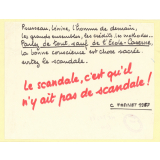 Rousseau, Lénine, l'homme de demain,
les grands ensembles, les crédits, les méthodes...
Parlez de tout sauf de l'École-Caserne,
la bonne conscience est chose sacrée
évitez le scandale.
Le scandale, c'est qu'il
n'y ait pas de scandale !
C. FREINET